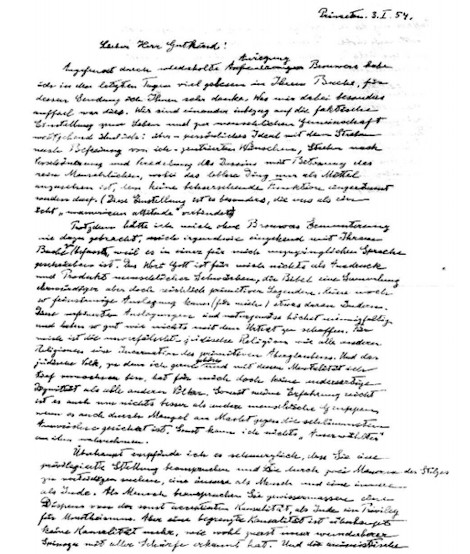 Princeton. 3. I. 54.
Lieber Herr Gutkind!
Angefeuert durch wiederholte Anregung Brouwers habe
ich in den letzten Tagen viel gelesen in Ihrem Buche, für
dessen Sendung ich Ihnen sehr danke. Was mir dabei besonders
auffiel war dies. Wir sind einander inbezug auf die faktische
Einstellung zum Leben und zur menschlichen Gemeinschaft
weitgehend ähnlich: persönliches Ideal mit dem Streben
nach Befreiung von ich-zentrierten Wünschen, Streben nach
Verschönerung und Veredelung des Daseins mit Betonung des
rein Menschlichen, wobei das leblose Ding nur als Mittel
anzusehen ist, dem keine beherrschende Funktion eingeräumt
werden darf. (Diese Einstellung ist es besonders, die uns als ein
echt "unamerican attitude" verbindet)
Trotzdem hätte ich mich ohne Brouwers Ermunterung
nie dazu gebracht, mich irgendwie eingehend mit Ihrem
Buche befassen, weil es in einer für mich unzugänglichen Sprache
geschrieben ist. Das Wort Gott ist für mich nichts als Ausdruck
und Produkt menschlicher Schwächen, die Bibel eine Sammlung
ehrwürdiger aber doch reichlich primitiver Legenden. Keine noch
so feinsinnige Auslegung kann (für mich) etwas daran ändern.
Diese verfeinerten Auslegungen sind naturgemäss höchst mannigfaltig
und haben so gut wie nichts mit dem Urtext zu schaffen. Für
mich ist die unverfälschte jüdische Religion wie alle anderen
Religionen eine Incarnation des primitiven Aberglaubens. Und das
jüdische Volk, zu dem ich gerne gehöre und mit dessen Mentalität ich
tief verwachsen bin, hat für mich doch keine andersartige
Dignität als alle anderen Völker. Soweit meine Erfahrung reicht
ist es auch um nichts besser als andere menschliche Gruppen
wenn es auch durch Mangel an Macht gegen die schlimmsten
Auswüchse gesichert ist. Sonst kann ich nichts „Auserwähltes"
an ihm wahrnehmen.
Überhaupt empfinde ich es schmerzlich, dass Sie eine
privilegierte Stellung beanspruchen und sie durch zwei Mauern des Stolzes
zu verteidigen suchen, eine äussere als Mensch und eine innere
als Jude. Als Mensch beanspruchen Sie gewissermassen einen
Dispens von der sonst acceptierten Kausalität, als Jude ein Privileg
für Monotheismus. Aber eine begrenzte Kausalität ist überhaupt
keine Kausalität mehr, wie wohl zuerst unser wunderbarer
Spinoza mit aller Schärfe erkannt hat. Und die animistische